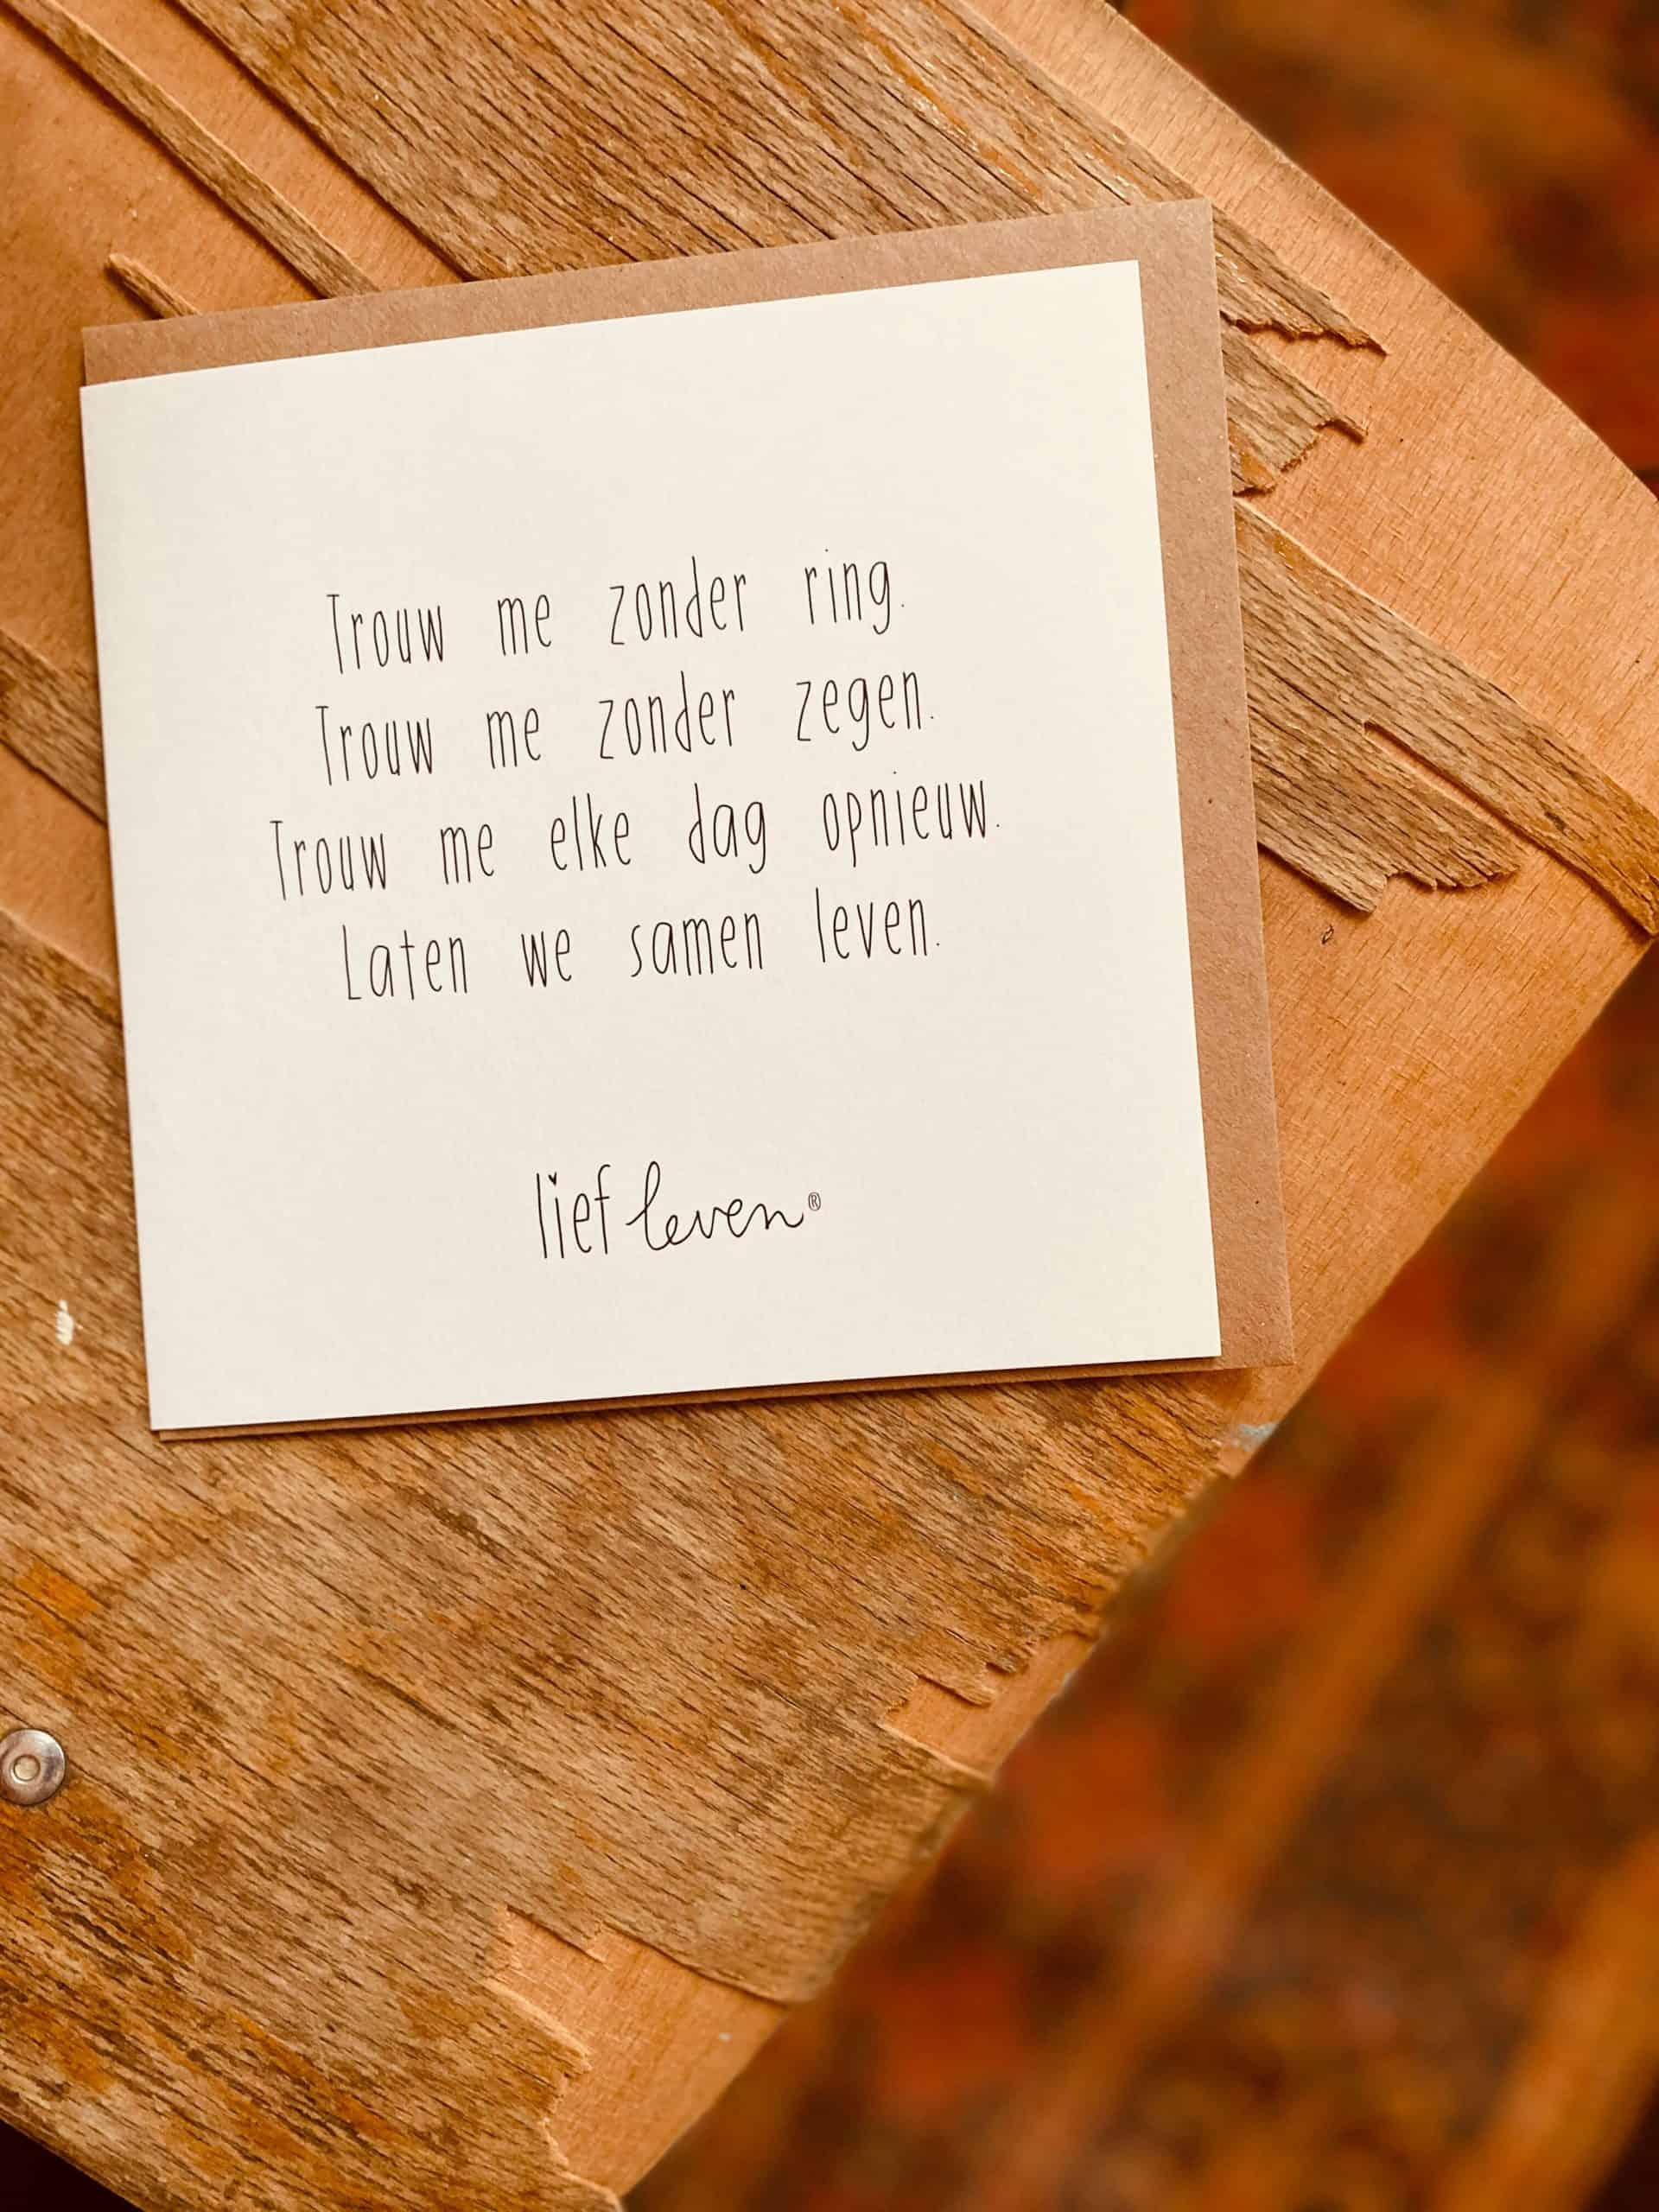 Trouw me zonder ring.
Trouw me zonder zegen.
Trouw me elke dag opnieuw.
Laten we samen leven.
lief leven®